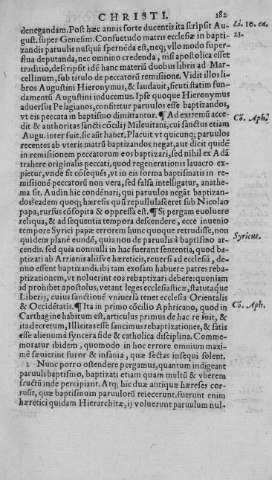 CHRISTI. 282
denegandam. Post hæc annis forte ducentis ita scripsit Au-
gust. super Genesim. Consuetudo matris ecclesiæ in bapti-
zandis paruulis nusquã spernẽda est, neq; vllo modo super-
flua deputanda, nec omnino credenda, nisi apostolica esset
traditio, descripsit idẽ hanc materiã duobus libris ad Mar-
cellinum, sub titulo de peccatorũ remissione. Vidit illos li-
bros Augustini Hieronymus, & laudauit, secuti statim fun-
damentũ Augustini inducemus. Ipse quoque Hieronymus
aduersus Pelagianos, confitetur paruulos esse baptizandos,
vt eis peccata in baptismo dimittantur. ¶ Ad extremũ acce-
dit & authoritas sancti cõcilij Mileuitani, cui sanctus etiam
Augu. interfuit. sic ait habet. Placuit vt quicunq; paruulos
recentes ab vteris matrũ baptizandos negat, aut dicit quidẽ
in remissionem peccatorum eos baptizari, sed nihil ex Adã
trahere originalis peccati, quod regenerationis lauacro ex-
pietur, vnde fit cõsequẽs, vt in eis forma baptismatis in re-
missionẽ peccatorũ non vera, sed falsa intelligatur, anathe-
ma sit. Audin hic condẽnari, qui paruulos negãt baptizan-
dos? eadem quoq; hæresis quũ repullulasceret sub Nicolao
papa, rursus cõsopita & oppressa est. ¶ Si pergam euoluere
reliqua, & ad sequentia tempera descendere, ecce inuenio
tempore Syrici papæ errorem hunc quoque retrudisse, non
quidem planè eundẽ, quia non de paruulis à baptismo ar-
cendis. sed quia nonnulli in hac fuerant sententia, quod bap-
tizati ab Arrianis alijsue hæreticis, reuersi ad ecclesiã, de-
nuo essent baptizandi. ibi tam exosam habuere patres reba-
ptizationem, vt noluerint eos rebaptizari debere: quoniam
id prohibet apostolus, vetant leges ecclesiasticæ, statutaque
Liberij, cuius sanctionẽ venuerãt tunc ecclesia Orientalis
& Occidẽtalis. ¶ Itra in primo cõcilio Aphricano, quod in
Carthagine habitum est, articulus primus de hac re fuit, &
ita decretum, Illicitas esse sancimus rebaptizationes, & satis
esse alienum à syncera fide & catholica disciplina. Comme-
moratur ibidem, quomodo in hoc errore omnium maxi-
mè sæuierint furor & insania, quæ sectas insequi solent.
Nunc porro ostendere pergamus, quantum indigeant
paruuli baptismo, baptizati etiam quam multũ & vberem
fructũ inde percipiant. Atq; hic duæ antiquæ hæreses cor-
rusũt, quæ baptismum paruulorũ reiecerunt, fuerunt enim
hæretici quidam Hierarchitæ, ij voluerunt paruulum nul-
Li. 10. ca.
23.
Cõ. Aph.
Syricus.
Cõ. Aph.